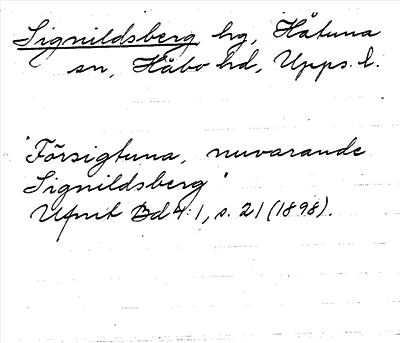 Signildsberg hg, Håtuna
sn, Håbo hd, Upps. l.
"Försigtuna, nuvarande
Signildsberg"
Ufmt Bd 4:1, s. 21 (1898).